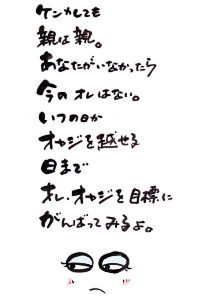 ケンカしても
親は親。
あなたがいなかったら
今のオレはない。
いつの日か
オヤジを越せる
日まで
オレ・オヤジを目標に
がんばってみるよ。